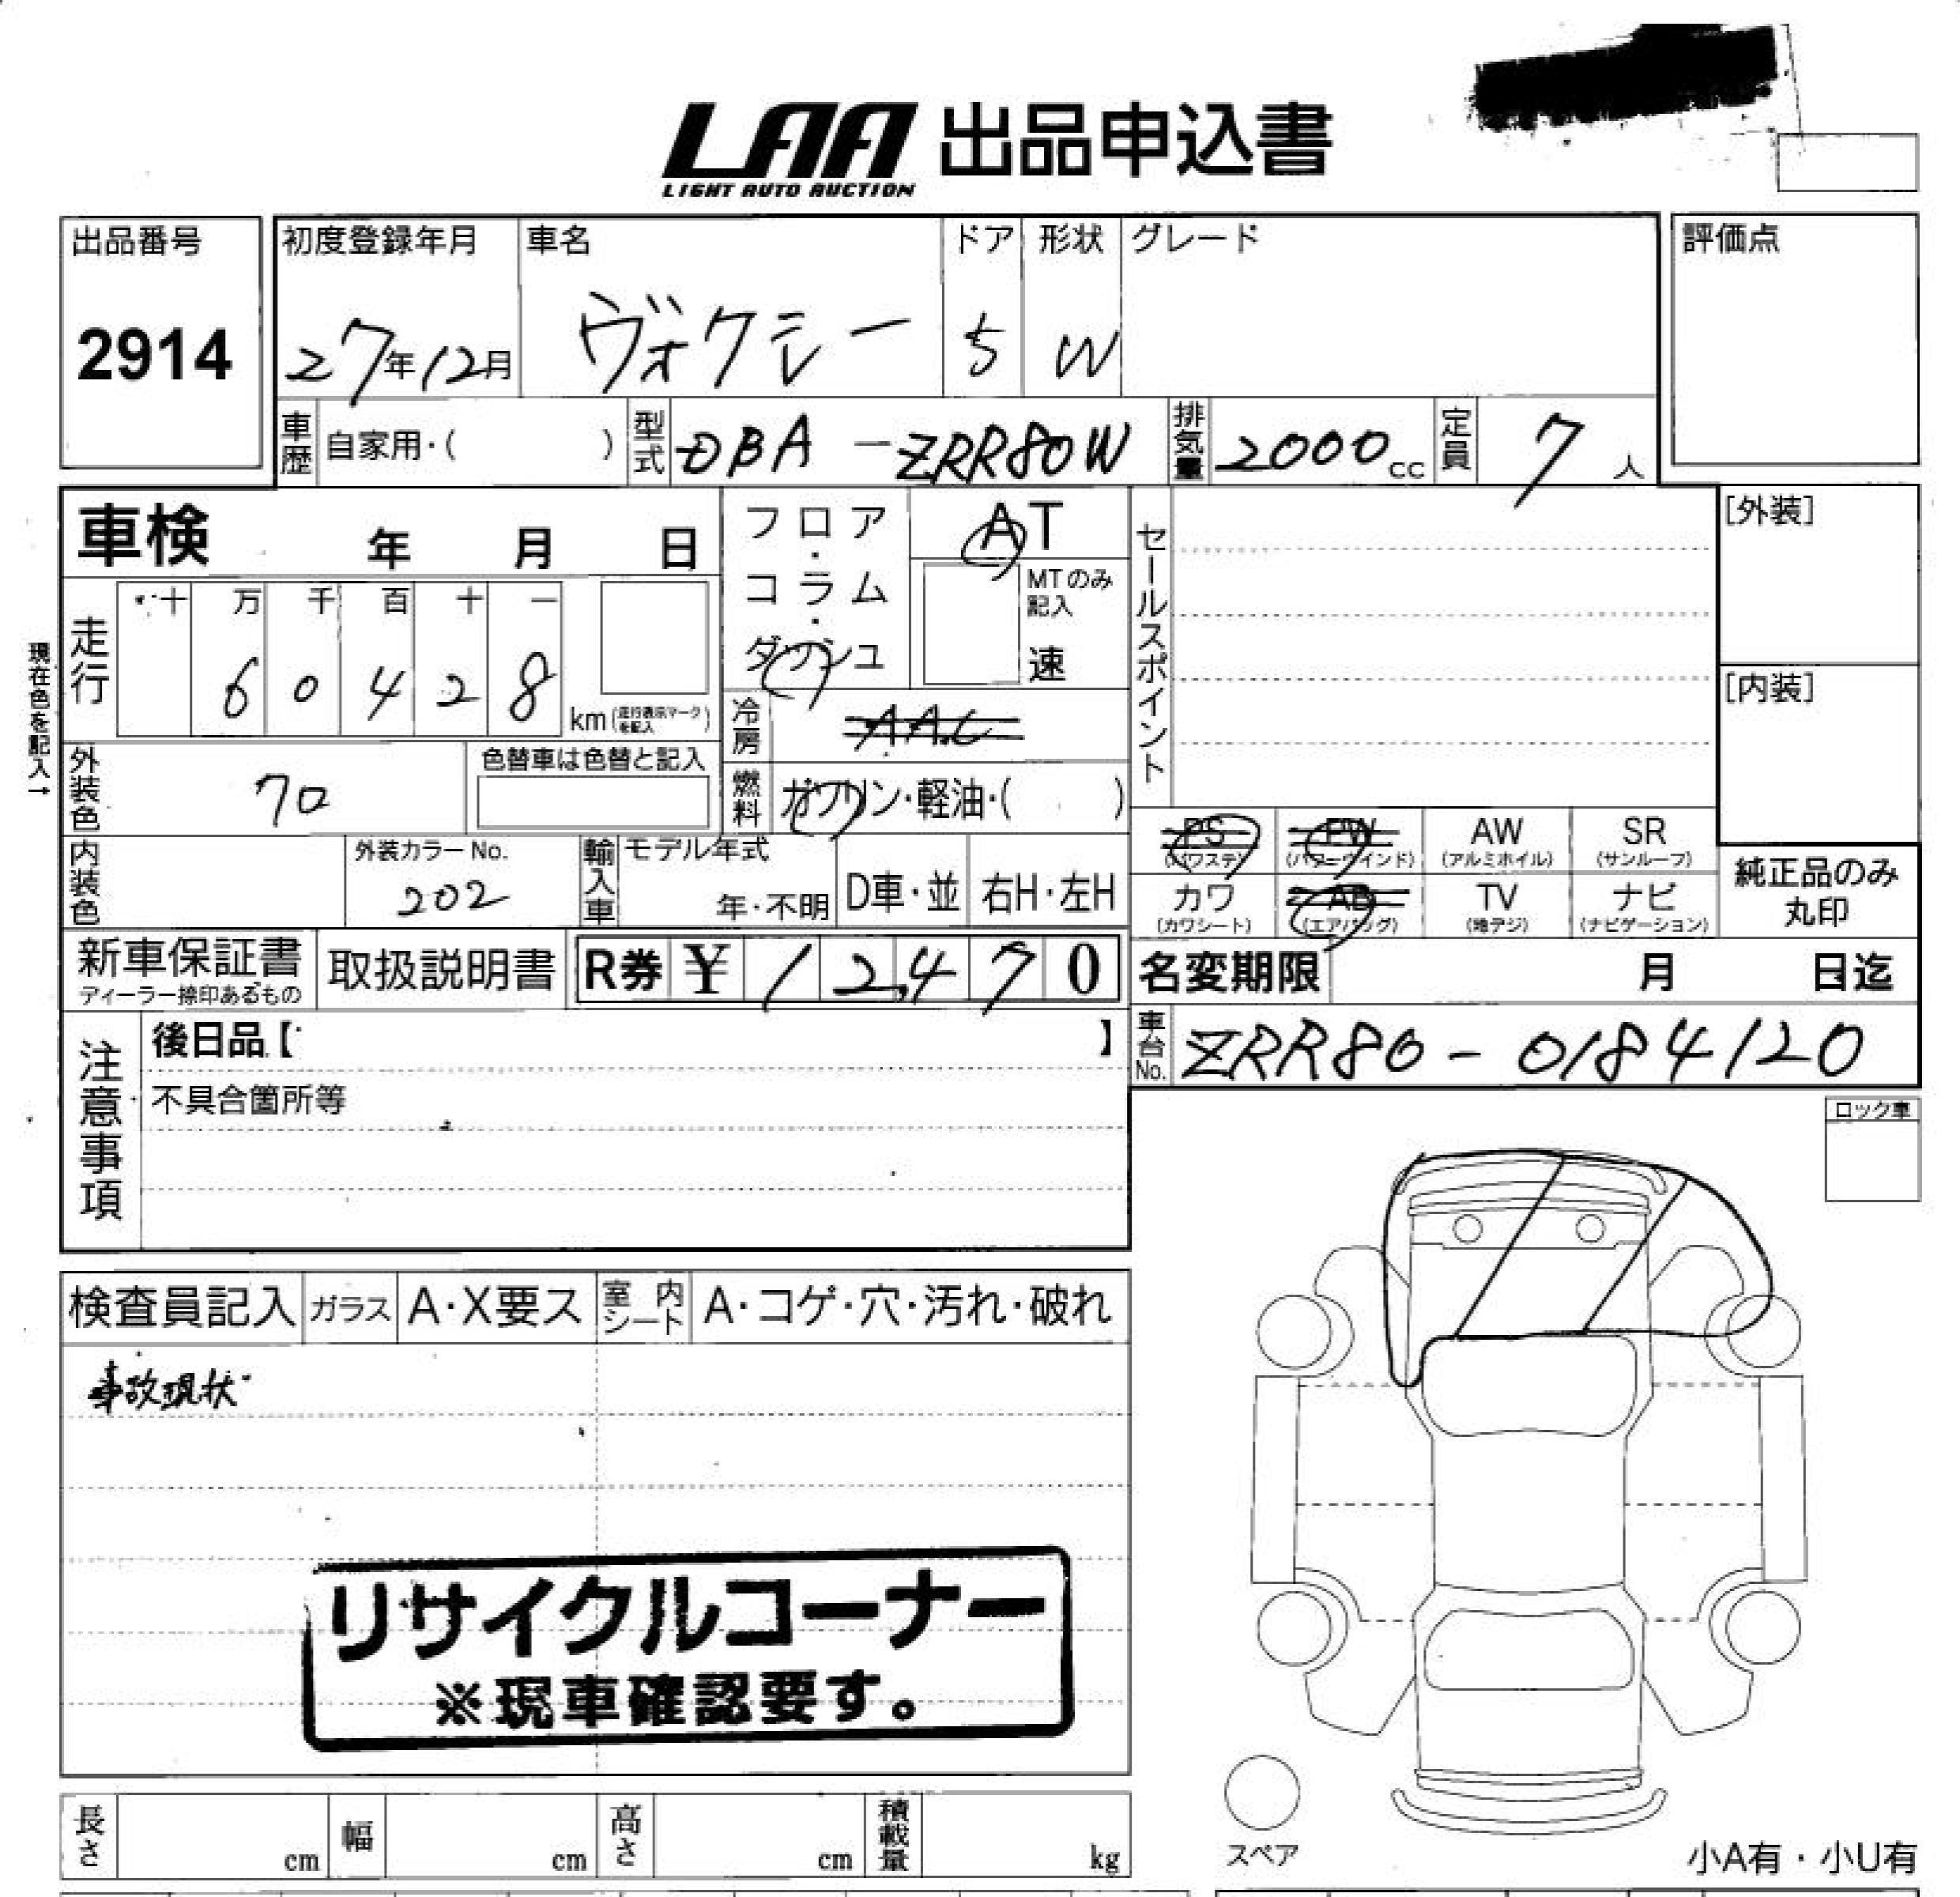 LAA 出品申込書
LIGHT AUTO AUCTION
出品番号
2914
初度登録年月
27年12月
車名
ヴォクシー
ドア
5
形状
W
グレード
評価点
車歴
自家用・( )
型式
DBA-ZRR80W
排気量
2000cc
定員
7人
車検 年 月 日
現在色を記入→
走行
十 万 千 百 十 一
6 0 4 2 8
km (走行表示マークを記入)
フロア・コラム・ダッシュ
AT
MTのみ記入
速
冷房
AAC
燃料
ガソリン・軽油・( )
外装色
クロ
色替車は色替と記入
内装色
外装カラーNo.
202
輸入車
モデル年式
年・不明
D車・並
右H・左H
セールスポイント
[外装]
[内装]
PS
(パワステ)
PW
(パワーウインド)
AW
(アルミホイル)
SR
(サンルーフ)
カワ
(カワシート)
AB
(エアバッグ)
TV
(地デジ)
ナビ
(ナビゲーション)
純正品のみ
丸印
新車保証書
ディーラー捺印あるもの
取扱説明書
R券 ¥ 12,470
名変期限 月 日迄
車台No.
ZRR80-0184120
注意事項
後日品【 】
不具合箇所等
ロック車
検査員記入
ガラス
A・X要ス
室内シート
A・コゲ・穴・汚れ・破れ
事故現状
リサイクルコーナー
※現車確認要す。
スペア
小A有・小U有
長さ cm
幅 cm
高さ cm
積載量 kg